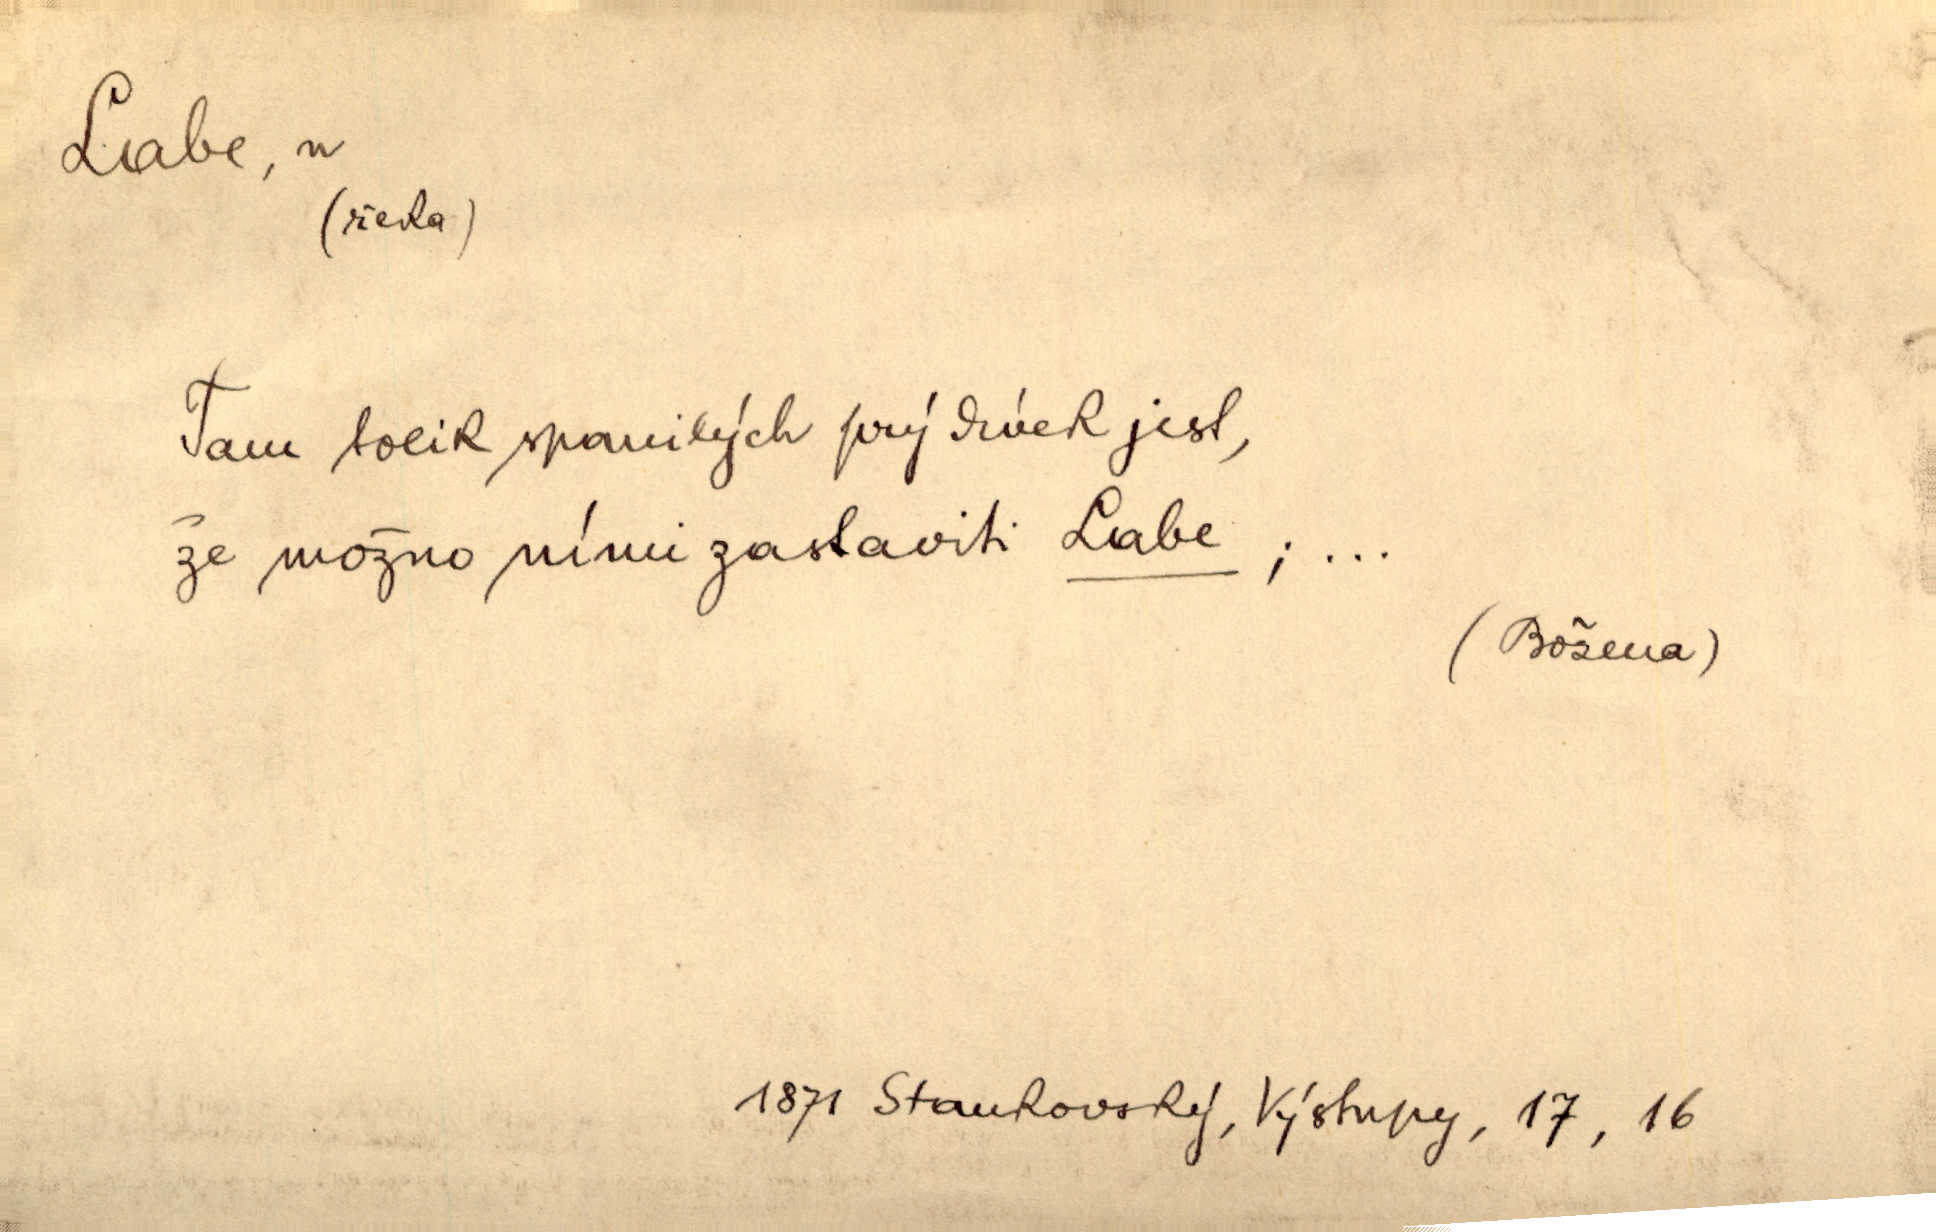 Labe, n
(řeka)
Tam tolik spanilých prý dívek jest,
že možnoními zastaviti Labe ; ...
(Božena)
1871 Stankovský, Výstupy, 17, 16